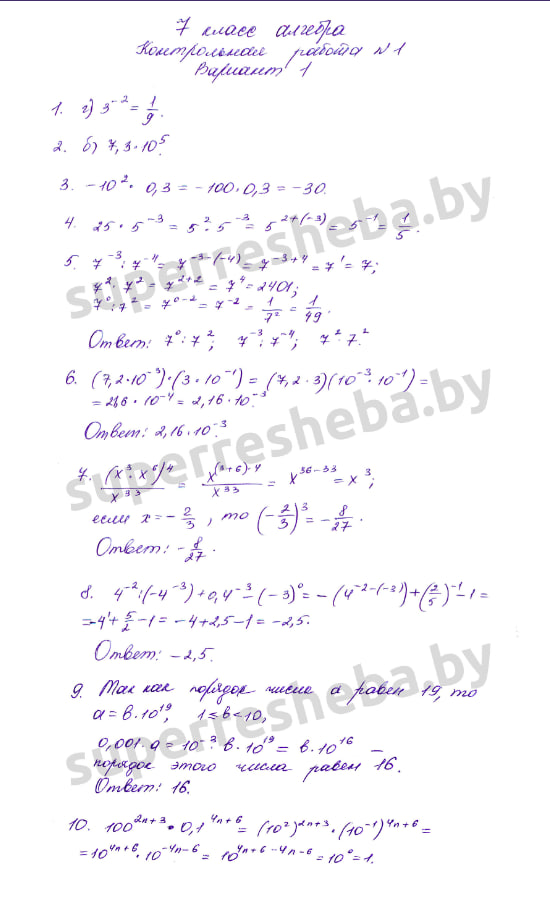 7 класс алгебра
Контрольная работа №1
Вариант 1
1. г) 3⁻² = 1/9.
2. б) 7,3·10⁵.
3. -10²· 0,3 = -100·0,3 = -30.
4. 25·5⁻³ = 5²·5⁻³ = 5²⁺⁽⁻³⁾ = 5⁻¹ = 1/5.
5. 7⁻³:7⁻⁴ = 7⁻³⁻⁽⁻⁴⁾ = 7⁻³⁺⁴ = 7¹ = 7;
7²·7² = 7²⁺² = 7⁴ = 2401;
7⁰:7² = 7⁰⁻² = 7⁻² = 1/7² = 1/49.
Ответ: 7⁰:7²; 7⁻³:7⁻⁴; 7²·7².
6. (7,2·10⁻³)·(3·10⁻¹) = (7,2·3)(10⁻³·10⁻¹) =
= 21,6·10⁻⁴ = 2,16·10⁻³.
Ответ: 2,16·10⁻³
7. (x³·x⁶)⁴/x³³ = x⁽³⁺⁶⁾·⁴/x³³ = x³⁶⁻³³ = x³;
если x = -2/3, то (-2/3)³ = -8/27.
Ответ: -8/27.
8. 4⁻²:(-4⁻³)+0,4⁻¹-(-3)⁰ = -(4⁻²⁻⁽⁻³⁾)+(2/5)⁻¹-1 =
= -4¹+5/2-1 = -4+2,5-1 = -2,5.
Ответ: -2,5.
9. Так как порядок числа a равен 19, то
a = b·10¹⁹, 1≤b<10,
0,001·a = 10⁻³·b·10¹⁹ = b·10¹⁶ –
порядок этого числа равен 16.
Ответ: 16.
10. 100²ⁿ⁺³·0,1⁴ⁿ⁺⁶ = (10²)²ⁿ⁺³·(10⁻¹)⁴ⁿ⁺⁶ =
= 10⁴ⁿ⁺⁶·10⁻⁴ⁿ⁻⁶ = 10⁴ⁿ⁺⁶⁻⁴ⁿ⁻⁶ = 10⁰ = 1.
superresheba.by
superresheba.by
superresheba.by
superresheba.by